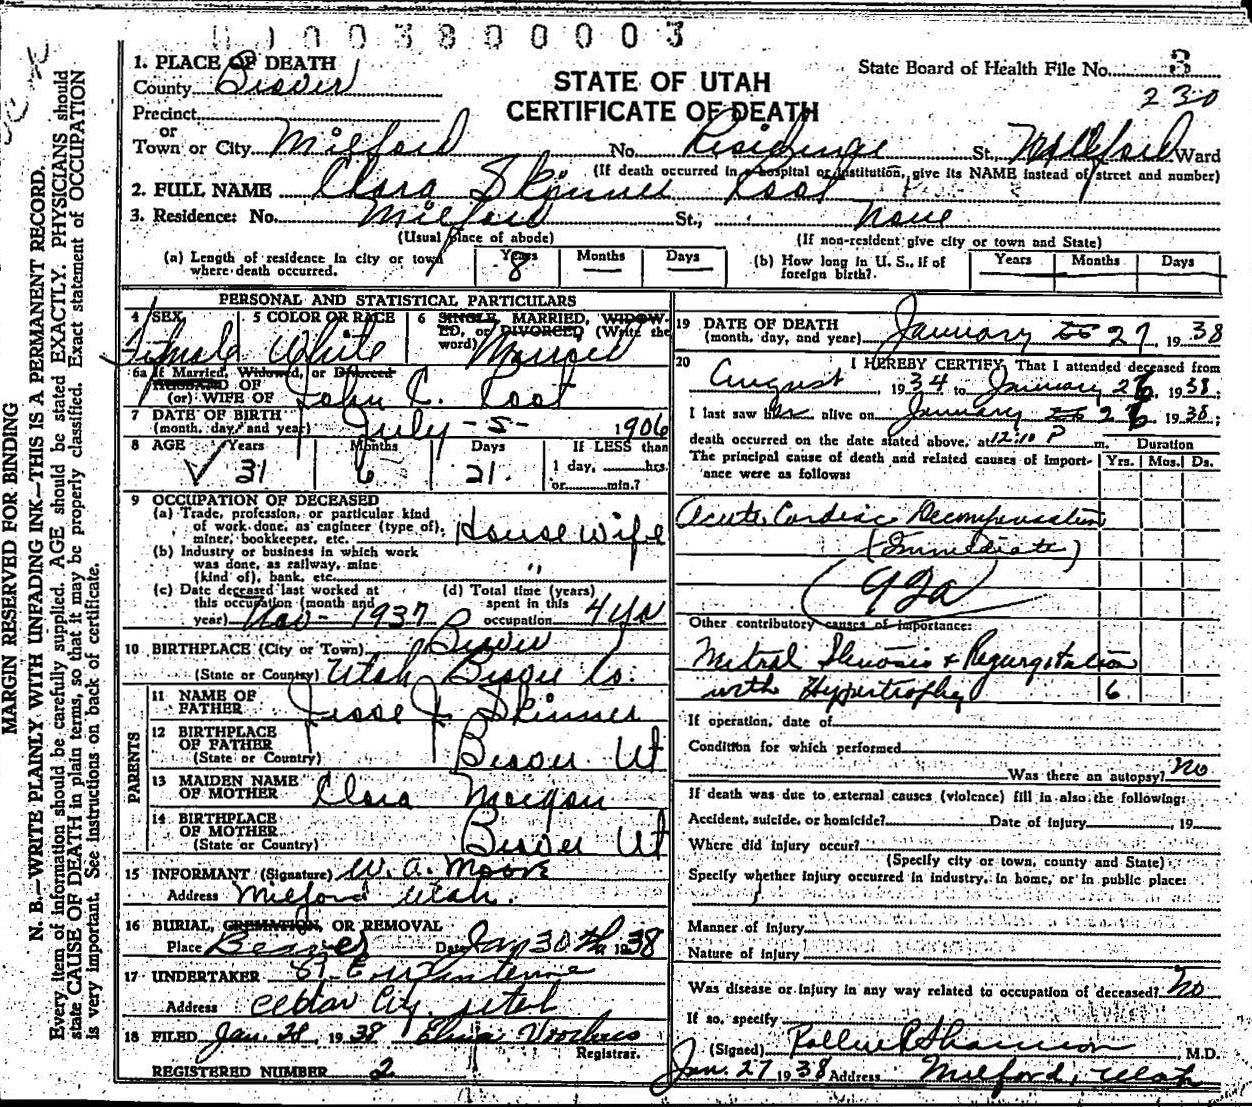 0100380003
1. PLACE OF DEATH
County Beaver
STATE OF UTAH
CERTIFICATE OF DEATH
State Board of Health File No. 3
230
Precinct
or
Town or City Milford No. Residence St. Milford Ward
(If death occurred in a hospital or institution, give its NAME instead of street and number)
2. FULL NAME Clara Skinner Root
3. Residence: No. Milford St., None
(Usual place of abode) (If non-resident give city or town and State)
(a) Length of residence in city or town where death occurred. Years 8 Months — Days —
(b) How long in U. S., if of foreign birth? Years Months Days
PERSONAL AND STATISTICAL PARTICULARS
4 SEX Female
5 COLOR OR RACE White
6 SINGLE, MARRIED, WIDOWED, or DIVORCED (Write the word) Married
6a If Married, Widowed, or Divorced
HUSBAND OF
(or) WIFE OF John C. Root
7 DATE OF BIRTH
(month, day, and year) July - 5 - 1906
8 AGE Years 31 Months 6 Days 21.
If LESS than
1 day, hrs.
or min.?
9 OCCUPATION OF DECEASED
(a) Trade, profession, or particular kind
of work done, as engineer (type of),
miner, bookkeeper, etc. House Wife
(b) Industry or business in which work
was done, as railway, mine
(kind of), bank, etc. "
(c) Date deceased last worked at
this occupation (month and
year) Nov - 1937
(d) Total time (years)
spent in this
occupation 4 yrs
10 BIRTHPLACE (City or Town) Beaver
(State or Country) Utah Beaver Co.
PARENTS
11 NAME OF
FATHER Jesse J. Skinner
12 BIRTHPLACE
OF FATHER
(State or Country) Beaver Ut
13 MAIDEN NAME
OF MOTHER Clara Morgan
14 BIRTHPLACE
OF MOTHER
(State or Country) Beaver Ut
15 INFORMANT (Signature) W. A. Moore
Address Milford Utah.
16 BURIAL, CREMATION, OR REMOVAL
Place Beaver Date Jan 30th 1938
17 UNDERTAKER
Address Cedar City, Utah
18 FILED Jan. 28, 1938 Elma Voorhees
Registrar.
REGISTERED NUMBER 2
19 DATE OF DEATH
(month, day, and year) January 27, 1938
20 I HEREBY CERTIFY, That I attended deceased from
August, 1934 to January 26, 1938;
I last saw her alive on January 26 1938;
death occurred on the date stated above, at 12:10 P m.
The principal cause of death and related causes of importance were as follows:
Duration
Yrs. Mos. Ds.
Acute Cardiac Decompensation
(Immediate)
92a
Other contributory causes of importance:
Mitral Stenosis & Regurgitation
with Hypertrophy 6
If operation, date of
Condition for which performed
Was there an autopsy? No
If death was due to external causes (violence) fill in also the following:
Accident, suicide, or homicide? Date of injury, 19
Where did injury occur?
(Specify city or town, county and State)
Specify whether injury occurred in industry, in home, or in public place:
Manner of injury
Nature of injury
Was disease or injury in any way related to occupation of deceased? No
If so, specify
(Signed) Shannon, M.D.
Jan. 27 1938 Address Milford, Utah
MARGIN RESERVED FOR BINDING
N. B.—WRITE PLAINLY WITH UNFADING INK—THIS IS A PERMANENT RECORD.
Every item of information should be carefully supplied. AGE should be stated EXACTLY. PHYSICIANS should
state CAUSE OF DEATH in plain terms, so that it may be properly classified. Exact statement of OCCUPATION
is very important. See instructions on back of certificate.